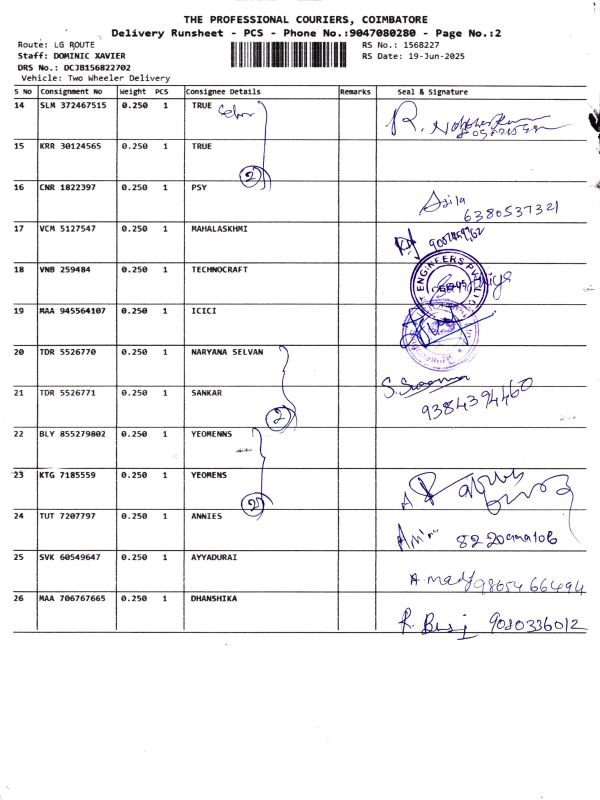 THE PROFESSIONAL COURIERS, COIMBATORE
Delivery Runsheet - PCS - Phone No.:9047080280 - Page No.:2
Route: LG ROUTE RS No.: 1568227
Staff: DOMINIC XAVIER RS Date: 19-Jun-2025
DRS No.: DCJB156822702
Vehicle: Two Wheeler Delivery
S No Consignment No Weight PCS Consignee Details Remarks Seal & Signature
14 SLM 372467515 0.250 1 TRUE R.
15 KRR 30124565 0.250 1 TRUE
2
16 CNR 1822397 0.250 1 PSY
6380537321
17 VCM 5127547 0.250 1 MAHALASKHMI
18 VNB 259484 0.250 1 TECHNOCRAFT ENGINEERS
19 MAA 945564107 0.250 1 ICICI
20 TDR 5526770 0.250 1 NARYANA SELVAN
21 TDR 5526771 0.250 1 SANKAR S.
2 9384394460
22 BLY 855279802 0.250 1 YEOMENNS
23 KTG 7185559 0.250 1 YEOMENS
2
24 TUT 7207797 0.250 1 ANNIES
25 SVK 60549647 0.250 1 AYYADURAI
9865466494
26 MAA 706767665 0.250 1 DHANSHIKA
R. 9080336012